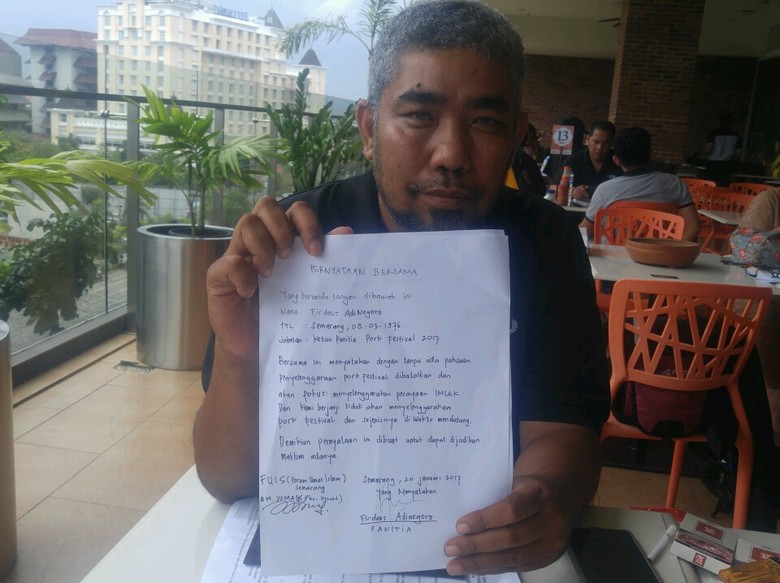 13
PERNYATAAN BERSAMA
Yang bertanda tangan dibawah ini
Nama Firdaus AdiNegoro
TTL : Semarang, 03-03-1976
Jabatan : ketua Panitia Pork Festival 2017
Bersama ini menyatakan dengan tanpa ada paksaan
Penyelenggaraan pork festival dibatalkan dan
akan fokus menyelenggarakan perayaan IMLEK
Dan kami berjanji tidak akan menyelenggarakan
pork festival dan sejenisnya di waktu mendatang.
Demikian pernyataan ini dibuat untuk dapat dijadikan
Maklum adanya.
FUIS (Forum Umat Islam) Semarang, 20 januari 2017
Semarang Yang Menyatakan
Firdaus Adinegoro
PANITIA